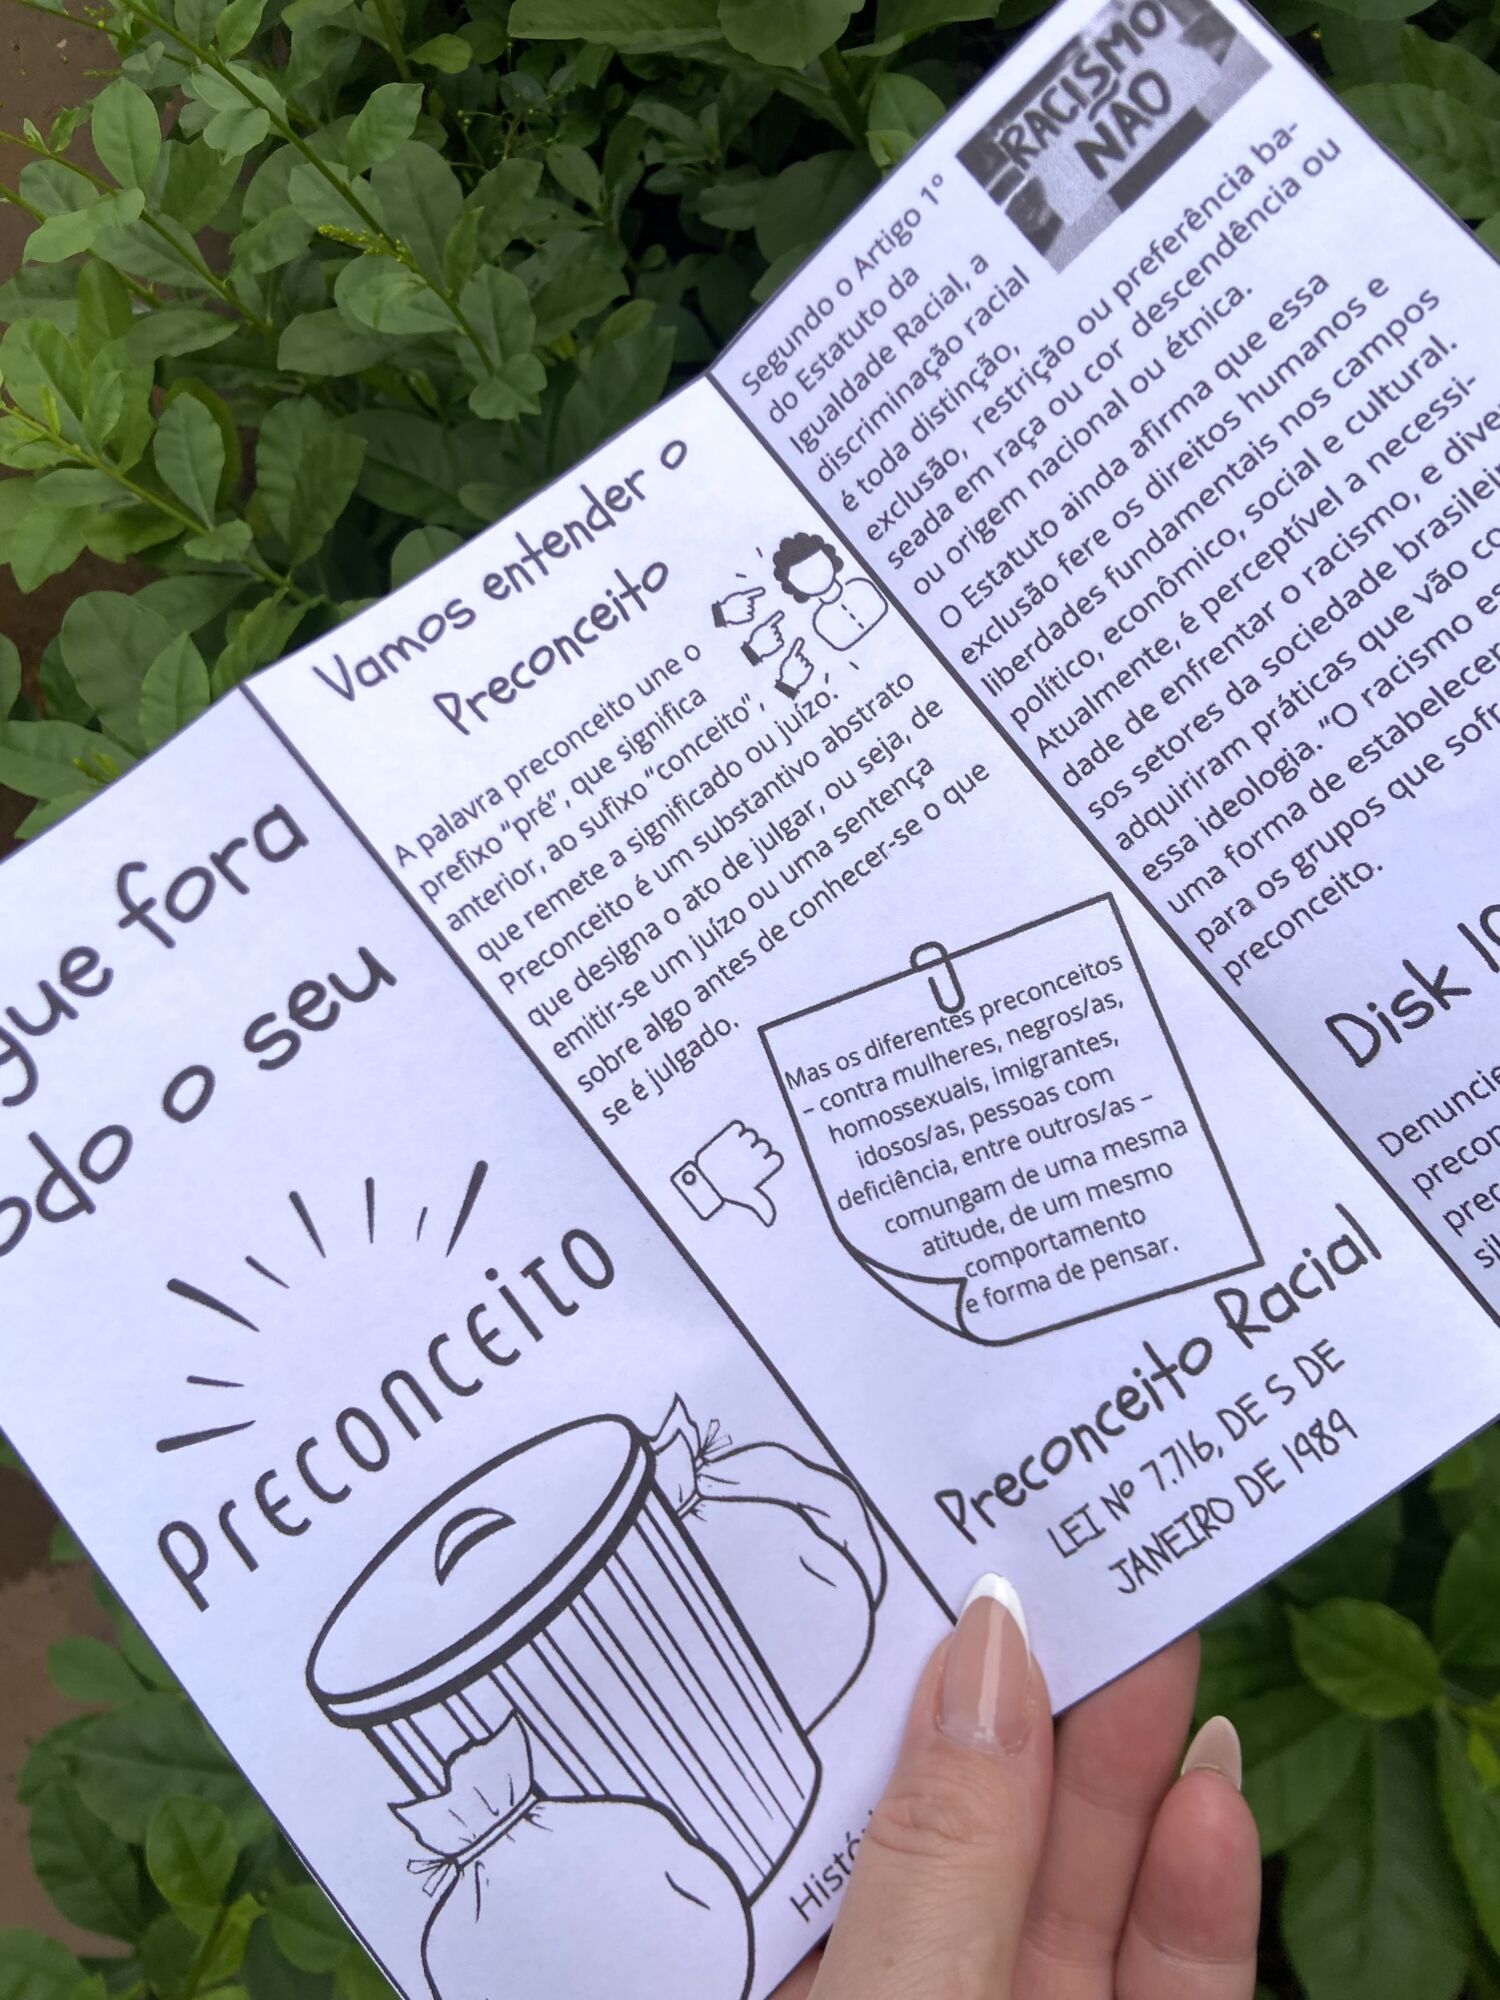 fora
o seu
PRECONCEITO
Vamos entender o
Preconceito
A palavra preconceito une o
prefixo "pré", que significa
anterior, ao sufixo "conceito",
que remete a significado ou juízo.
Preconceito é um substantivo abstrato
que designa o ato de julgar, ou seja, de
emitir-se um juízo ou uma sentença
sobre algo antes de conhecer-se o que
se é julgado.
Mas os diferentes preconceitos
– contra mulheres, negros/as,
homossexuais, imigrantes,
idosos/as, pessoas com
deficiência, entre outros/as –
comungam de uma mesma
atitude, de um mesmo
comportamento
e forma de pensar.
Preconceito Racial
LEI Nº 7.716, DE 5 DE
JANEIRO DE 1989
RACISMO
NÃO
Segundo o Artigo 1º
do Estatuto da
Igualdade Racial, a
discriminação racial
é toda distinção,
exclusão, restrição ou preferência ba-
seada em raça ou cor descendência ou
ou origem nacional ou étnica.
O Estatuto ainda afirma que essa
exclusão fere os direitos humanos e
liberdades fundamentais nos campos
político, econômico, social e cultural.
Atualmente, é perceptível a necessi-
dade de enfrentar o racismo, e dive
sos setores da sociedade brasilei
adquiriram práticas que vão co
essa ideologia. "O racismo es
uma forma de estabelecer
para os grupos que sofr
preconceito.
Disk
Denuncie